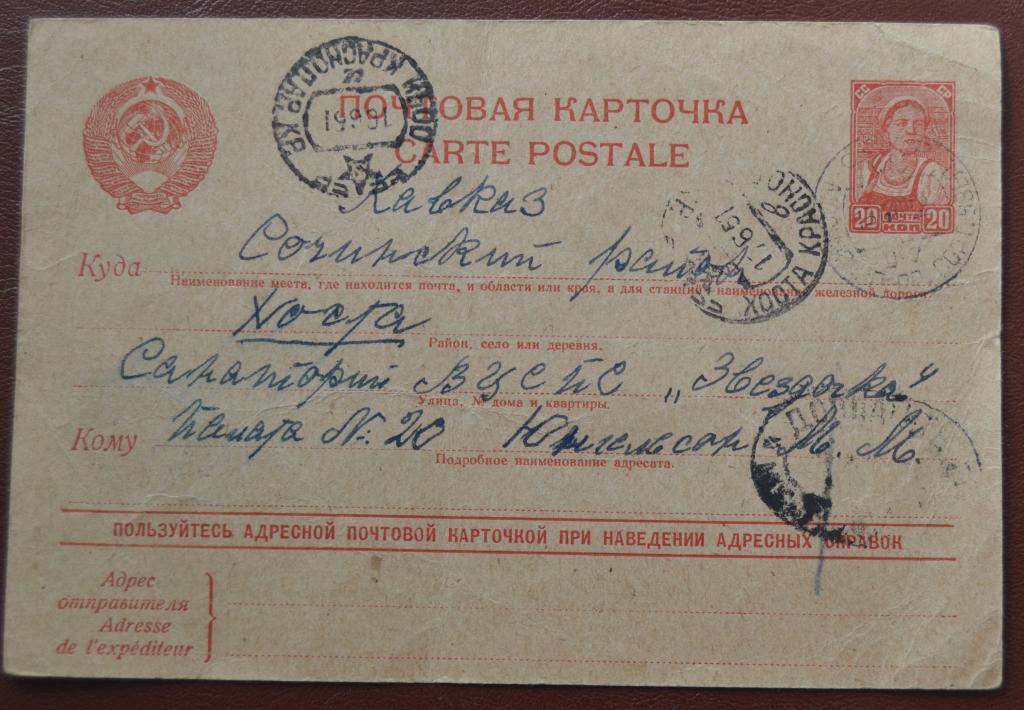 ПОЧТОВАЯ КАРТОЧКА
CARTE POSTALE
СС СР
20 ПОЧТА КОП 20
Кавказ
Куда Сочинский район
Наименование места, где находится почта, и области или края, а для станций наименование железной дороги
Хоста
Район, село или деревня.
Санаторий ВЦСПС „Звездочка"
Улица, № дома и квартиры.
Кому Палата №: 20 Юнгельсон М. М.
Подробное наименование адресата.
ПОЛЬЗУЙТЕСЬ АДРЕСНОЙ ПОЧТОВОЙ КАРТОЧКОЙ ПРИ НАВЕДЕНИИ АДРЕСНЫХ СПРАВОК
Адрес
отправителя
Adresse
de l'expéditeur
16651
ХОСТА КРАСНО
6.51